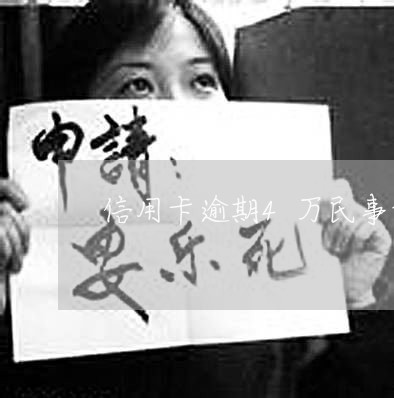 申請：
信用卡逾期4 万民事
安乐死